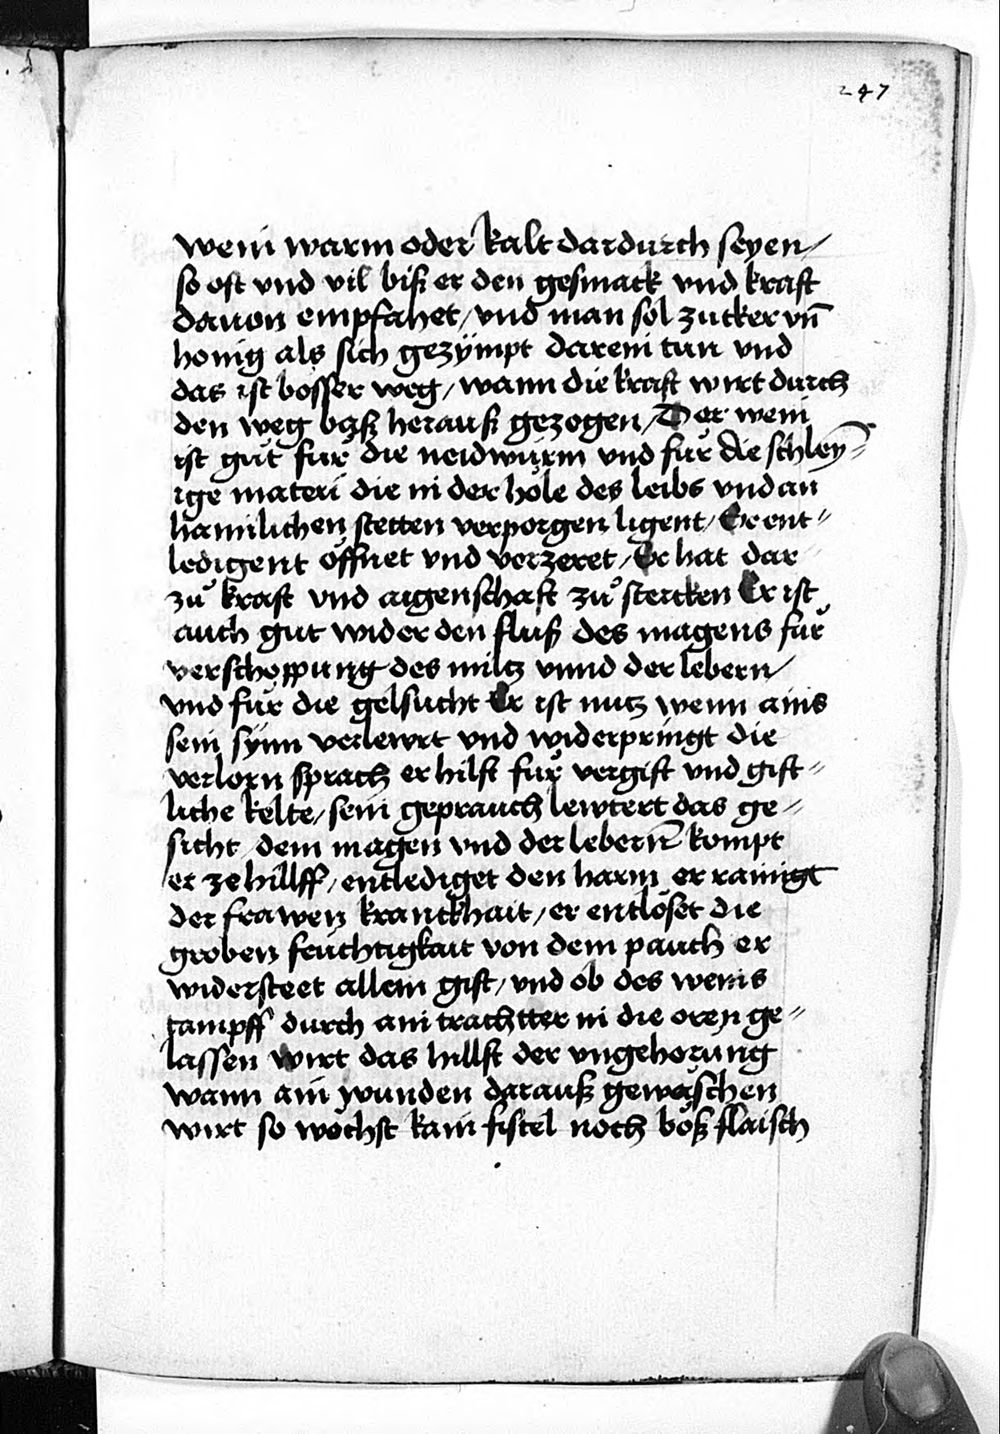 247
wein warm oder kalt dardurch seyen /
so oft vnd vil biß er den gesmack vnd kraft
dauon empfahet / vnd man sol zucker vn̄
honig als sich gezÿmpt darein tun vnd
das ist bosser weg / wann die kraft wirt durch
den weg baß herauß gezogen / Der wein
ist gůt fur die neidwurm vnd fur die schleÿ=
ige materi die in der hole des leibs vnd an
hamlichen stetten verporgen ligent / Er ent=
ledigent öffnet vnd verzeret / Er hat dar=
zů kraft vnd aigenschaft zů stercken Er ist
auch gut wider den fluß des magens fur
verschoppung des miltz vnnd der lebern /
vnd fur die gelsucht Er ist nutz wenn ains
sein synn verlewrt vnd widerpringt die
verlorn sprach er hilft fur vergift vnd gift=
liche kelte / sein geprauch lewtert das ge=
sicht / dem magen vnd der lebern̄ kompt
er ze hillff / entlediget den harm er rainigt
der frawen kranckhait / er entlöset die
groben feuchtigkait von dem pauch er
widersteet allem gift / vnd ob des weins
tampff durch ain trachtter in die oren ge=
lassen wirt das hillft der vngehorung
wann ain wunden darauß gewaschen
wirt so wechst kain fistel noch böß flaisch